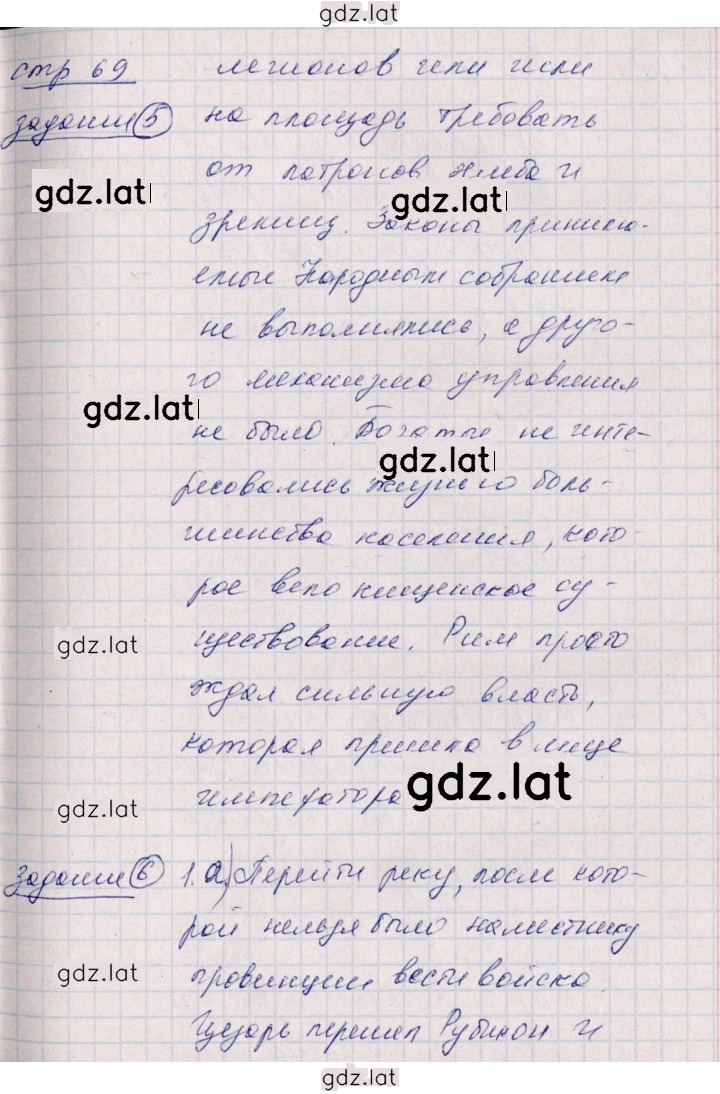 gdz.lat
стр 69 легионов или шли
задание 5 на площадь требовать
от патронов хлеба и
gdz.lat gdz.lat
зрелищ. Законы принимае-
емые Народным собранием
не выполнялись, а друго-
го механизма управления
gdz.lat
не было. Богатые не инте-
gdz.lat
ресовались жизнью боль-
шинства населения, кото-
рое вело нищенское су-
ществование. Рим просто
gdz.lat
ждал сильную власть,
которая пришла в лице
императора
gdz.lat gdz.lat
Задание 6 1. а) Перейти реку, после кото-
рой нельзя было наместнику
gdz.lat
провинции вести войска.
Цезарь перешел Рубикон и
gdz.lat